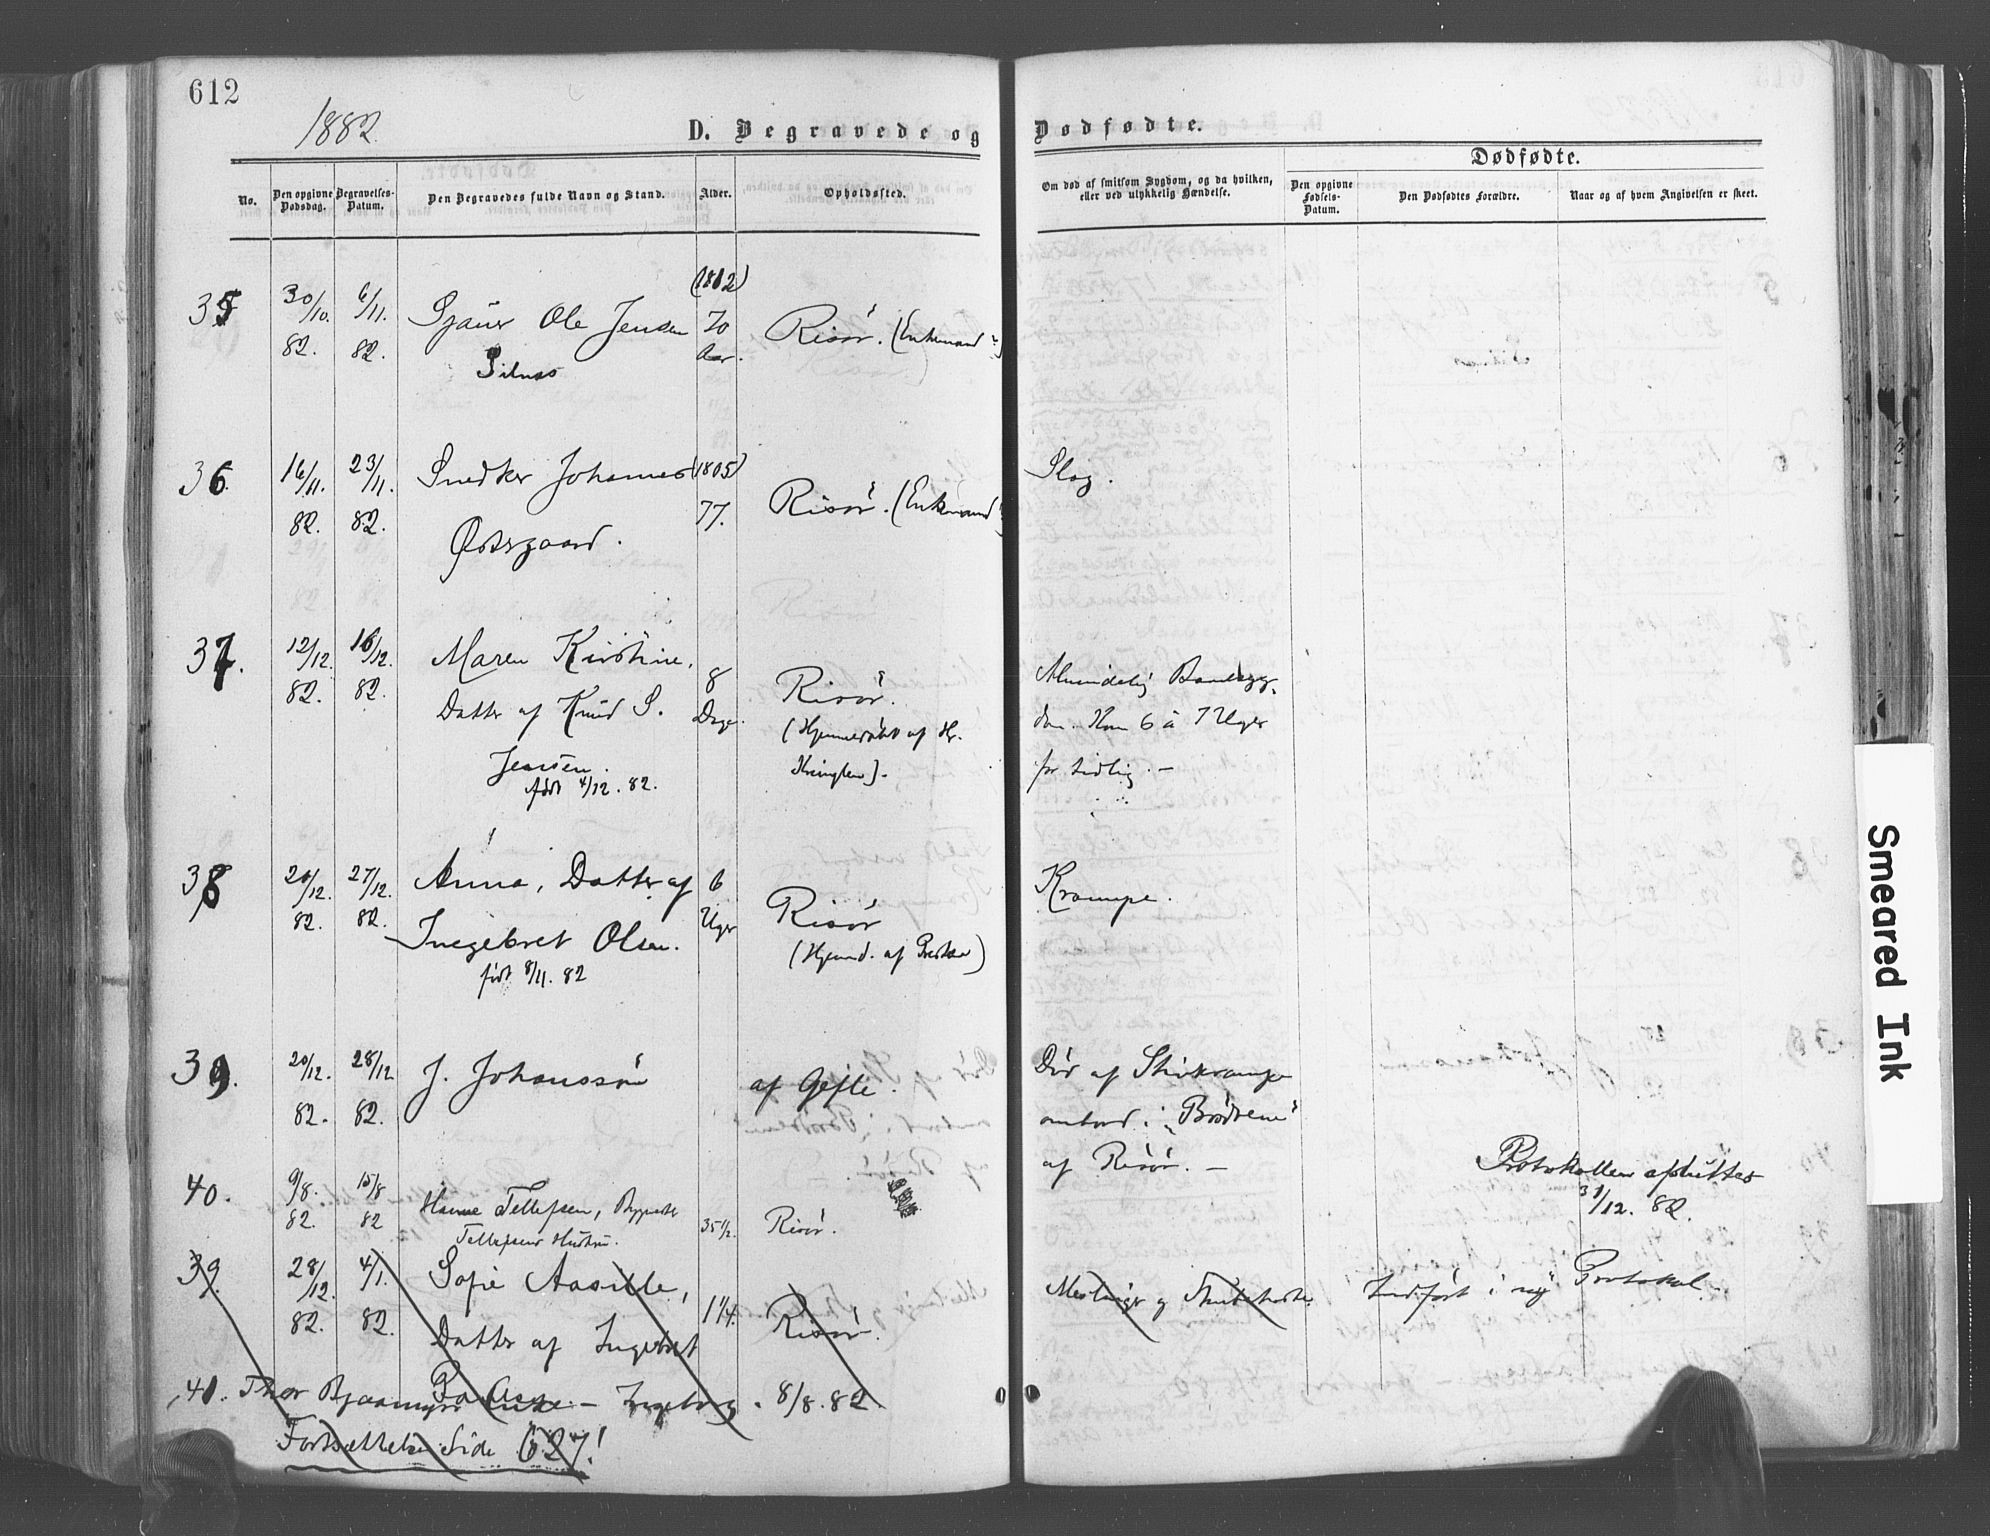 612
1882
D. Begravede og Dødfødte.
Dødfødte.
No.
Den opgivne Dødsdag.
Begravelses-Datum.
Den Begravedes fulde Navn og Stand.
Alder.
Opholdssted.
Om død af smitsom Sygdom, og da hvilken, eller ved ulykkelig Hændelse.
Den opgivne Fødsels-Datum.
Den Dødfødtes Forældre.
Naar og af hvem Angivelsen er skeet.
35 30/10. 82. 6/11. 82. Ole Jensen (1812) 70 Aar. Risør. (Enkemand)
36. 16/11. 82. 23/11. 82. Snedker Johannes (1805) 77. Risør. (Enkemand) Slag.
Østergaard.
37. 12/12. 82. 16/12. 82. Maren Kirstine,
Datter af Knud S. 8 Dage. Risør.
Jensen.
født 4/12. 82.
(Hjemmedøbt af Hr.
Almindelig
6 à 7 Uger
for tidlig. –
38 20/12. 82. 27/12. 82. Anna, Datter af 6 Uger Risør Krampe.
Ingebret Olsen.
født 8/11. 82
(Hjemd. af
39. 20/12. 82. 28/12 82. J. Johanssón af Gefle. Død af
ombord i „Brødrene"
af Risør. –
Protokollen afsluttes
31/12. 82.
40. 9/8. 82. 15/8 82 Hanne Tellefsen,
Tellefsens Hustru. 35 1/2. Risør.
39. 28/12. 82. 4/1. 82. Sofie Aasille, 1 1/4. Risør.
Datter af Ingebret
Meslinger og
Indført i ny Protokol.
41. Thor – Ingeborg. 8/8. 82.
Fortsættelse Side 627!
Smeared Ink